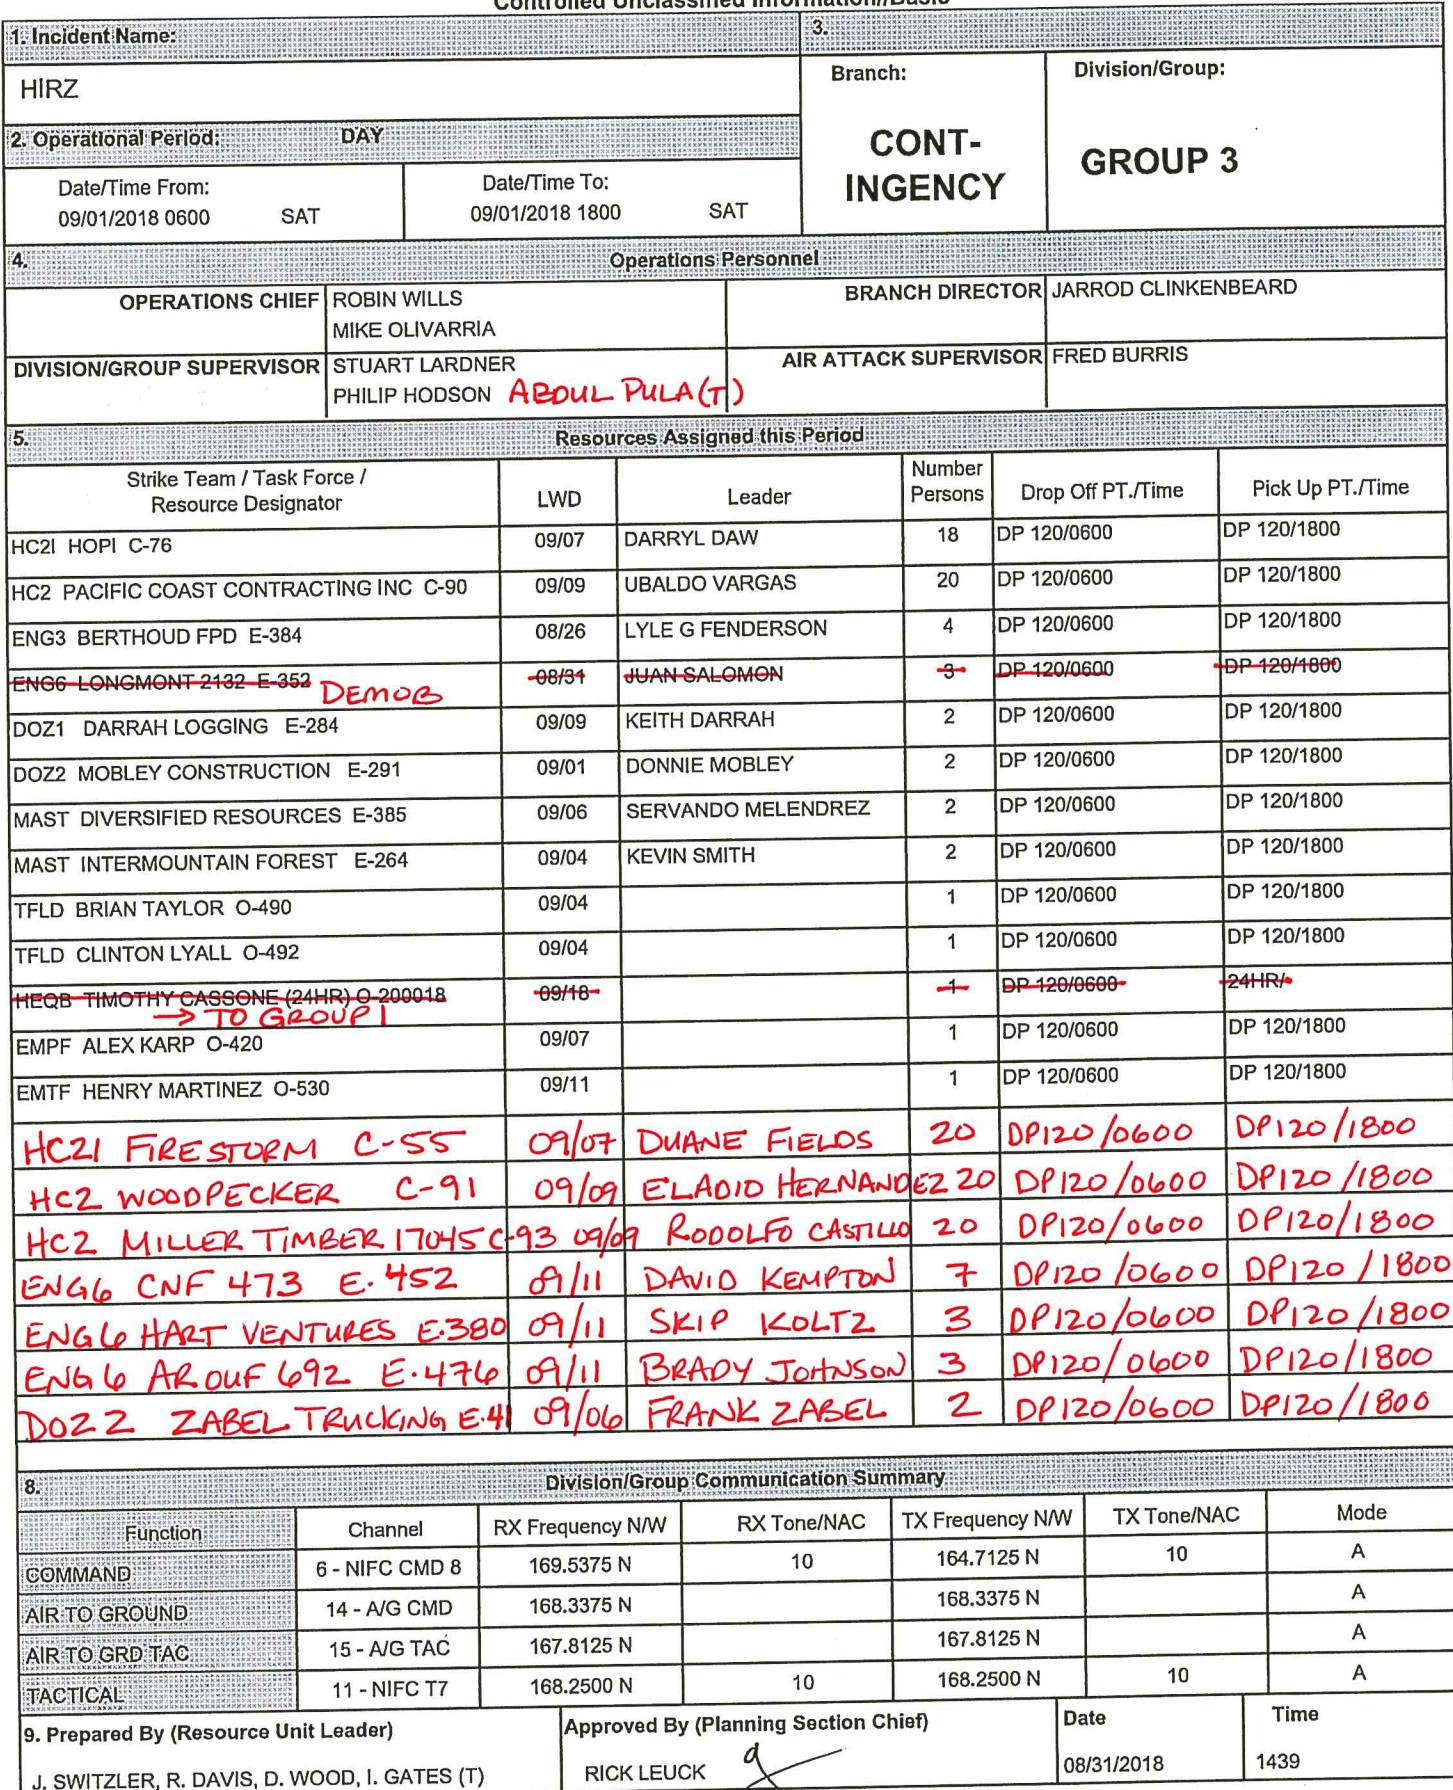 Controlled Unclassified Information//Basic
1. Incident Name:
3.
HIRZ
Branch:
Division/Group:
CONT-
INGENCY
GROUP 3
2. Operational Period: DAY
Date/Time From:
Date/Time To:
09/01/2018 0600 SAT
09/01/2018 1800 SAT
4. Operations Personnel
OPERATIONS CHIEF ROBIN WILLS
MIKE OLIVARRIA
BRANCH DIRECTOR JARROD CLINKENBEARD
DIVISION/GROUP SUPERVISOR STUART LARDNER
PHILIP HODSON ABDUL PULA (T)
AIR ATTACK SUPERVISOR FRED BURRIS
5. Resources Assigned this Period
Strike Team / Task Force /
Resource Designator
LWD
Leader
Number
Persons
Drop Off PT./Time
Pick Up PT./Time
HC2I HOPI C-76 09/07 DARRYL DAW 18 DP 120/0600 DP 120/1800
HC2 PACIFIC COAST CONTRACTING INC C-90 09/09 UBALDO VARGAS 20 DP 120/0600 DP 120/1800
ENG3 BERTHOUD FPD E-384 08/26 LYLE G FENDERSON 4 DP 120/0600 DP 120/1800
ENG6 LONGMONT 2132 E-352 08/31 JUAN SALOMON 3 DP 120/0600 DP 120/1800
DEMOB
DOZ1 DARRAH LOGGING E-284 09/09 KEITH DARRAH 2 DP 120/0600 DP 120/1800
DOZ2 MOBLEY CONSTRUCTION E-291 09/01 DONNIE MOBLEY 2 DP 120/0600 DP 120/1800
MAST DIVERSIFIED RESOURCES E-385 09/06 SERVANDO MELENDREZ 2 DP 120/0600 DP 120/1800
MAST INTERMOUNTAIN FOREST E-264 09/04 KEVIN SMITH 2 DP 120/0600 DP 120/1800
TFLD BRIAN TAYLOR O-490 09/04 1 DP 120/0600 DP 120/1800
TFLD CLINTON LYALL O-492 09/04 1 DP 120/0600 DP 120/1800
HEQB TIMOTHY CASSONE (24HR) O-200018 09/18 1 DP 120/0600 24HR/
→ TO GROUP 1
EMPF ALEX KARP O-420 09/07 1 DP 120/0600 DP 120/1800
EMTF HENRY MARTINEZ O-530 09/11 1 DP 120/0600 DP 120/1800
HC2I FIRESTORM C-55 09/07 DUANE FIELDS 20 DP120/0600 DP120/1800
HC2 WOODPECKER C-91 09/09 ELADIO HERNANDEZ 20 DP120/0600 DP120/1800
HC2 MILLER TIMBER 17045 C-93 09/09 RODOLFO CASTILLO 20 DP120/0600 DP120/1800
ENG6 CNF 473 E-452 09/11 DAVID KEMPTON 7 DP120/0600 DP120/1800
ENG6 HART VENTURES E-380 09/11 SKIP KOLTZ 3 DP120/0600 DP120/1800
ENG6 AROUF 692 E-476 09/11 BRADY JOHNSON 3 DP120/0600 DP120/1800
DOZ2 ZABEL TRUCKING E-41 09/06 FRANK ZABEL 2 DP120/0600 DP120/1800
8. Division/Group Communication Summary
Function Channel RX Frequency N/W RX Tone/NAC TX Frequency N/W TX Tone/NAC Mode
COMMAND 6 - NIFC CMD 8 169.5375 N 10 164.7125 N 10 A
AIR TO GROUND 14 - A/G CMD 168.3375 N 168.3375 N A
AIR TO GRD TAC 15 - A/G TAC 167.8125 N 167.8125 N A
TACTICAL 11 - NIFC T7 168.2500 N 10 168.2500 N 10 A
9. Prepared By (Resource Unit Leader)
Approved By (Planning Section Chief)
Date
Time
J. SWITZLER, R. DAVIS, D. WOOD, I. GATES (T)
RICK LEUCK
08/31/2018
1439